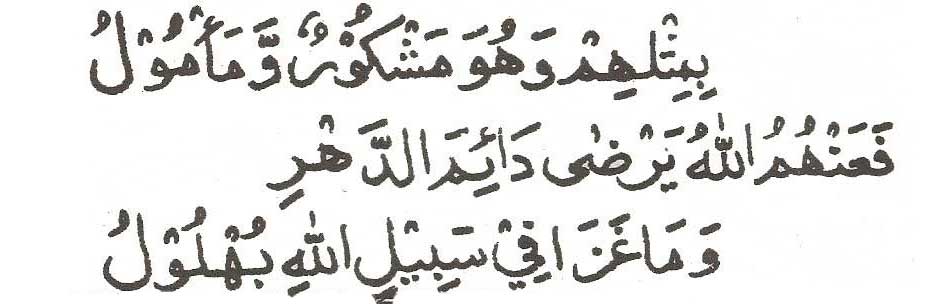 بِمِثْلِهِمْ وَهُوَ مَشْكُوْرٌ وَّمَأْمُوْلُ
فَعَنْهُمُ اللّٰهُ يَرْضٰى دَائِمَ الدَّهْرِ
وَمَا غَزَا فِيْ سَبِيْلِ اللّٰهِ بُهْلُوْلُ